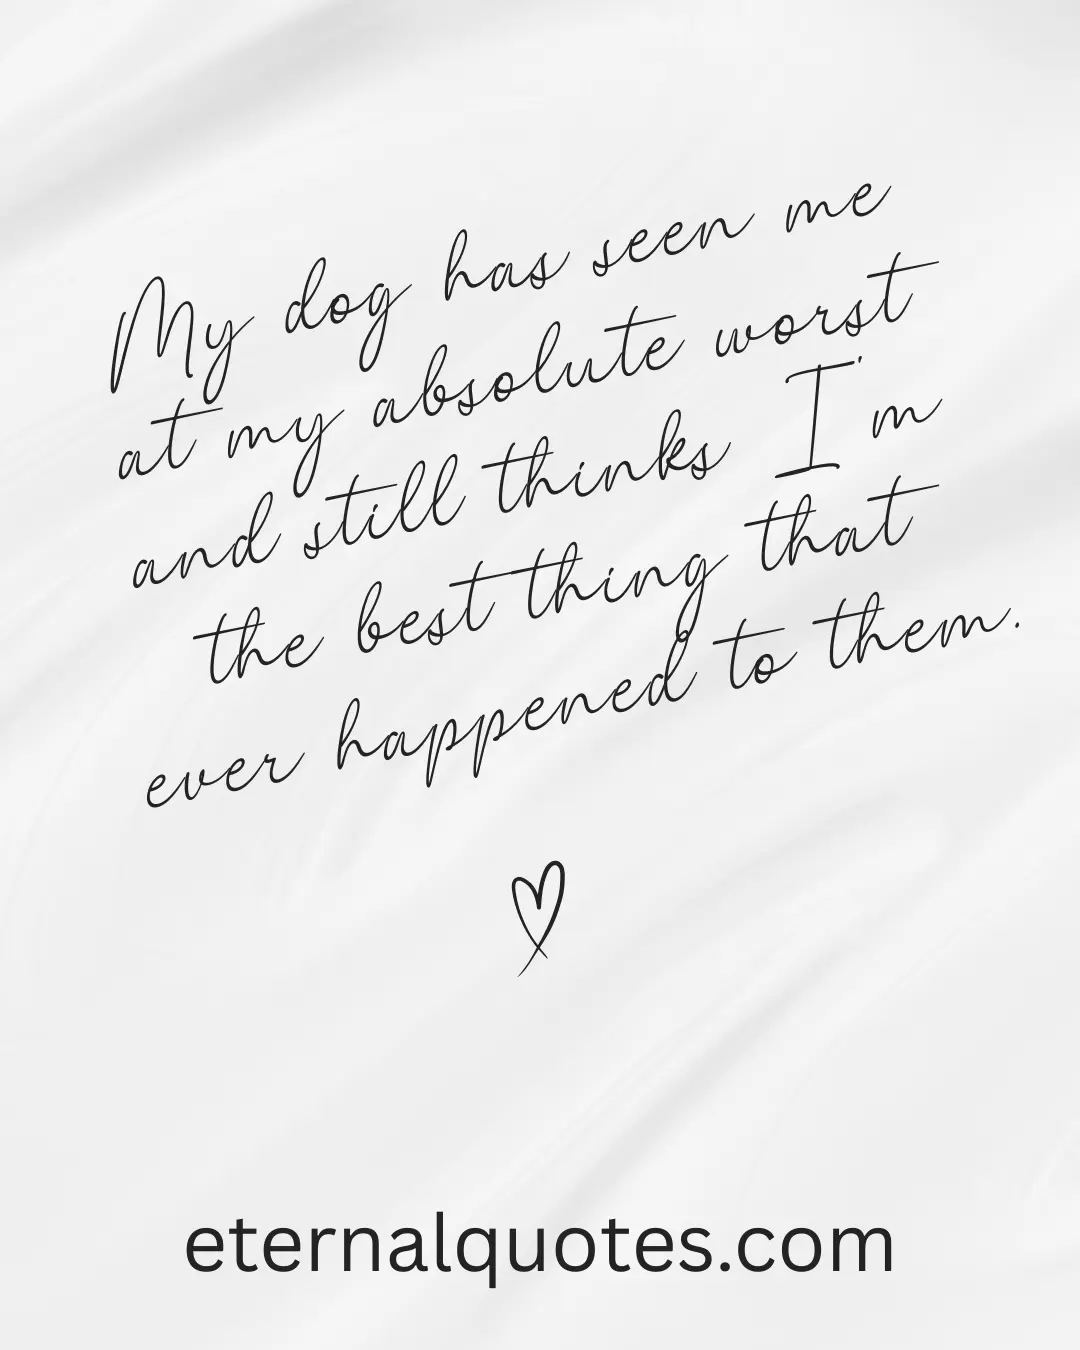 My dog has seen me
at my absolute worst
and still thinks I'm
the best thing that
ever happened to them.
eternalquotes.com